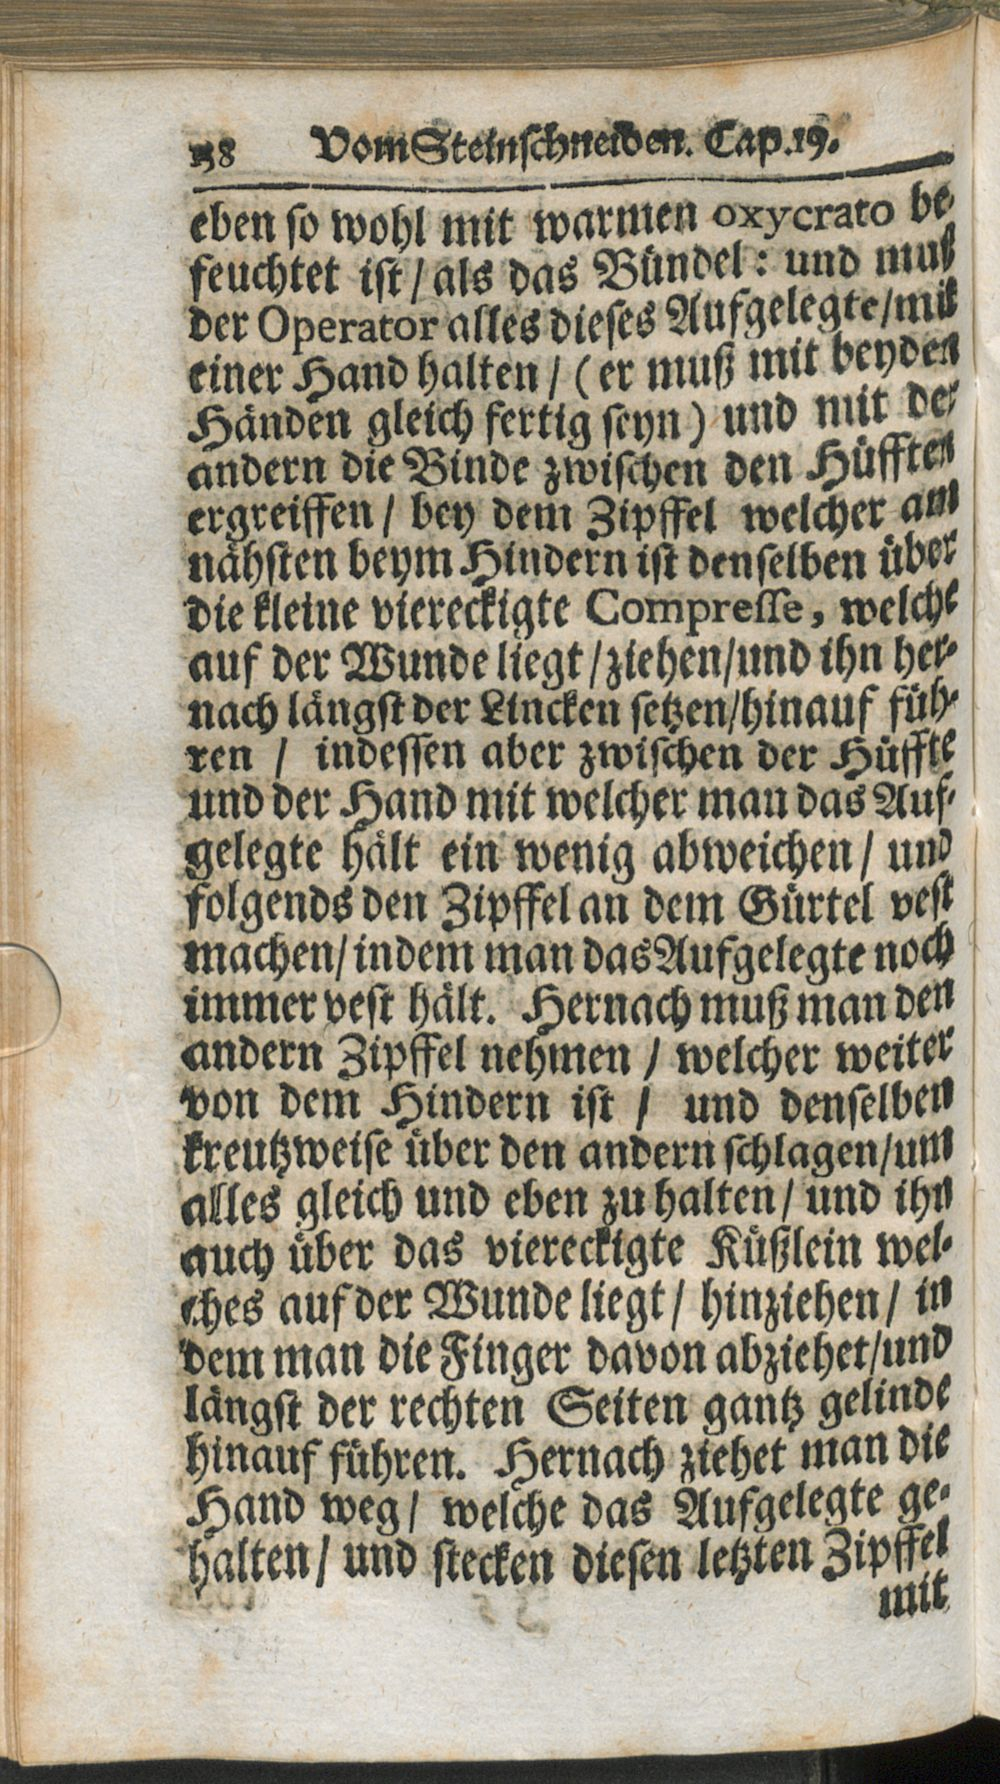 158 Vom Steinschneiden. Cap. 19.
eben so wohl mit warmen oxycrato be-
feuchtet ist / als das Bündel : und muß
der Operator alles dieses Aufgelegte / mit
einer Hand halten / ( er muß mit beyden
Händen gleich fertig seyn ) und mit der
andern die Binde zwischen den Hüfften
ergreiffen / bey dem Zipffel welcher am
nähsten beym Hindern ist denselben über
die kleine viereckigte Compresse, welche
auf der Wunde liegt / ziehen / und ihn her-
nach längst der Lincken setzen / hinauf füh-
ren / indessen aber zwischen der Hüffte
und der Hand mit welcher man das Auf-
gelegte hält ein wenig abweichen / und
folgends den Zipffel an dem Gürtel vest
machen / indem man das Aufgelegte noch
immer vest hält. Hernach muß man den
andern Zipffel nehmen / welcher weiter
von dem Hindern ist / und denselben
kreutzweise über den andern schlagen / um
alles gleich und eben zu halten / und ihn
auch über das viereckigte Küßlein wel-
ches auf der Wunde liegt / hinziehen / in
dem man die Finger davon abziehet / und
längst der rechten Seiten gantz gelinde
hinauf führen. Hernach ziehet man die
Hand weg / welche das Aufgelegte ge-
halten / und stecken diesen letzten Zipffel
mit